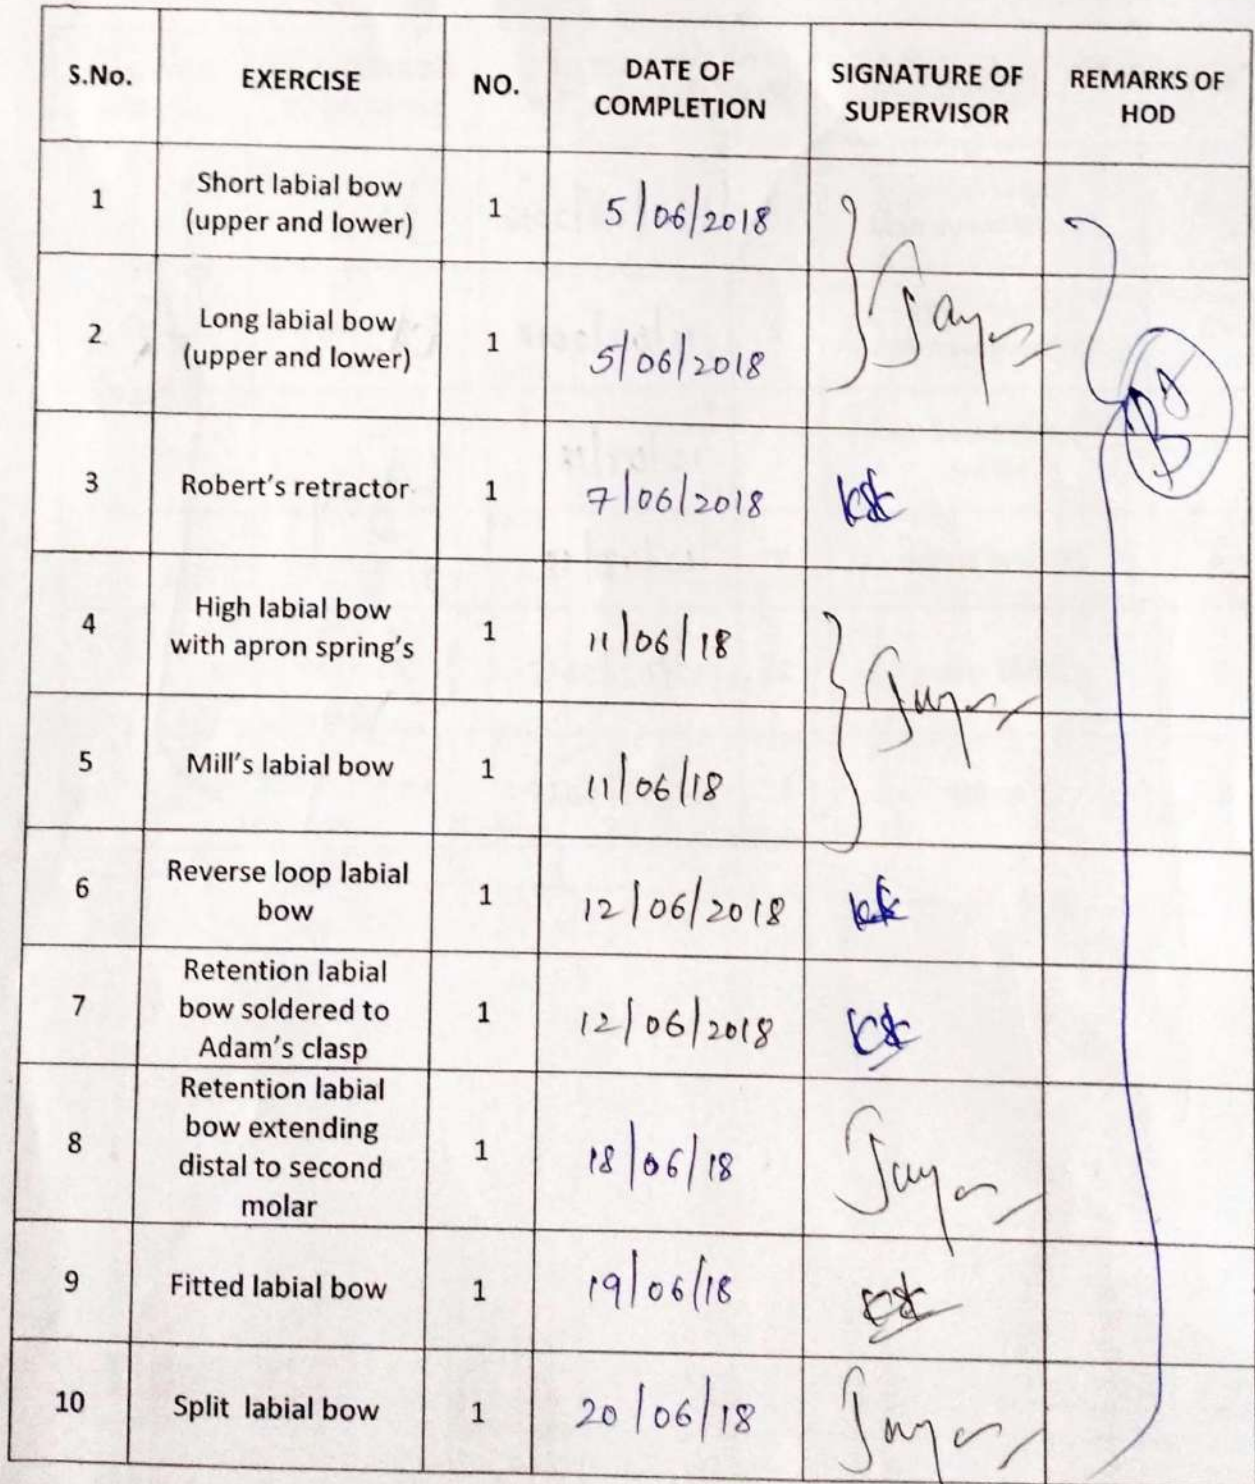 S.No. EXERCISE NO. DATE OF COMPLETION SIGNATURE OF SUPERVISOR REMARKS OF HOD
1 Short labial bow (upper and lower) 1 5/06/2018
2 Long labial bow (upper and lower) 1 5/06/2018
3 Robert's retractor 1 7/06/2018
4 High labial bow with apron spring's 1 11/06/18
5 Mill's labial bow 1 11/06/18
6 Reverse loop labial bow 1 12/06/2018
7 Retention labial bow soldered to Adam's clasp 1 12/06/2018
8 Retention labial bow extending distal to second molar 1 18/06/18
9 Fitted labial bow 1 19/06/18
10 Split labial bow 1 20/06/18